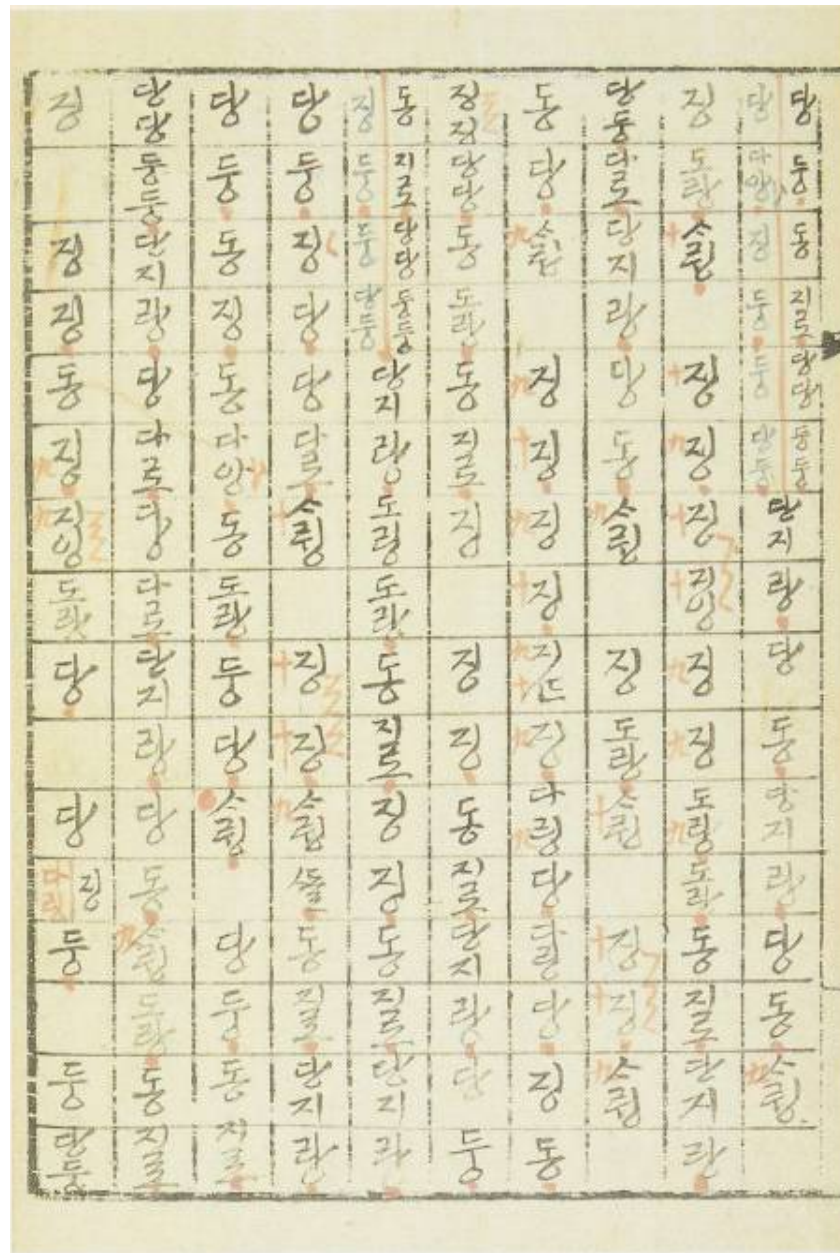 당 둥 동 지로 당당 둥둥 단지 랑 당 동 당지 랑 당 동 스렁
당 다앙 징 둥 둥 당둥
징 도랑 슬렁 징 징 징 지잉 징 징 도렁 도라 동 질로 단지 란
당둥 달로 당지 랑 당 동 스렁 징 도랑 스렁 징 징 스렁
동 당 스렁 징 징 징 징 징 다링 당 당 징 동
징징 당당 동 도랑 동 질로 징 징 징 동 질로 단지 랑 당 둥
동 지로 당당 둥둥 당지 랑 도렁 도랑 동 질로 징 징 동 질로 단지 라
징 둥 둥 당둥
당 둥 징 당 당 달로 스렁 징 징 스렁 동 질로 단지 란
당 둥 동 징 동 다앙 동 도랑 둥 당 스렁 당 둥 동 지로
당당 둥둥 단지 랑 당 다로 당 다로 단지 랑 당 동 스렁 도랑 동 지로
징 징 징 동 징 지잉 도랑 당 당 징 둥 둥 당둥
다링